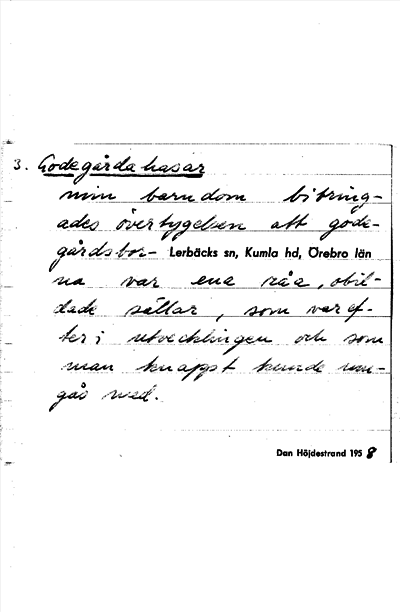 3. Godegårdahasar
min barndom bibring-
ades övertygelsen att gode-
gårdsbor- Lerbäcks sn, Kumla hd, Örebro län
na var ena råa, obil-
dade sällar, som var ef-
ter i utvecklingen och som
man knappt kunde um-
gås med.
Dan Höjdestrand 1958